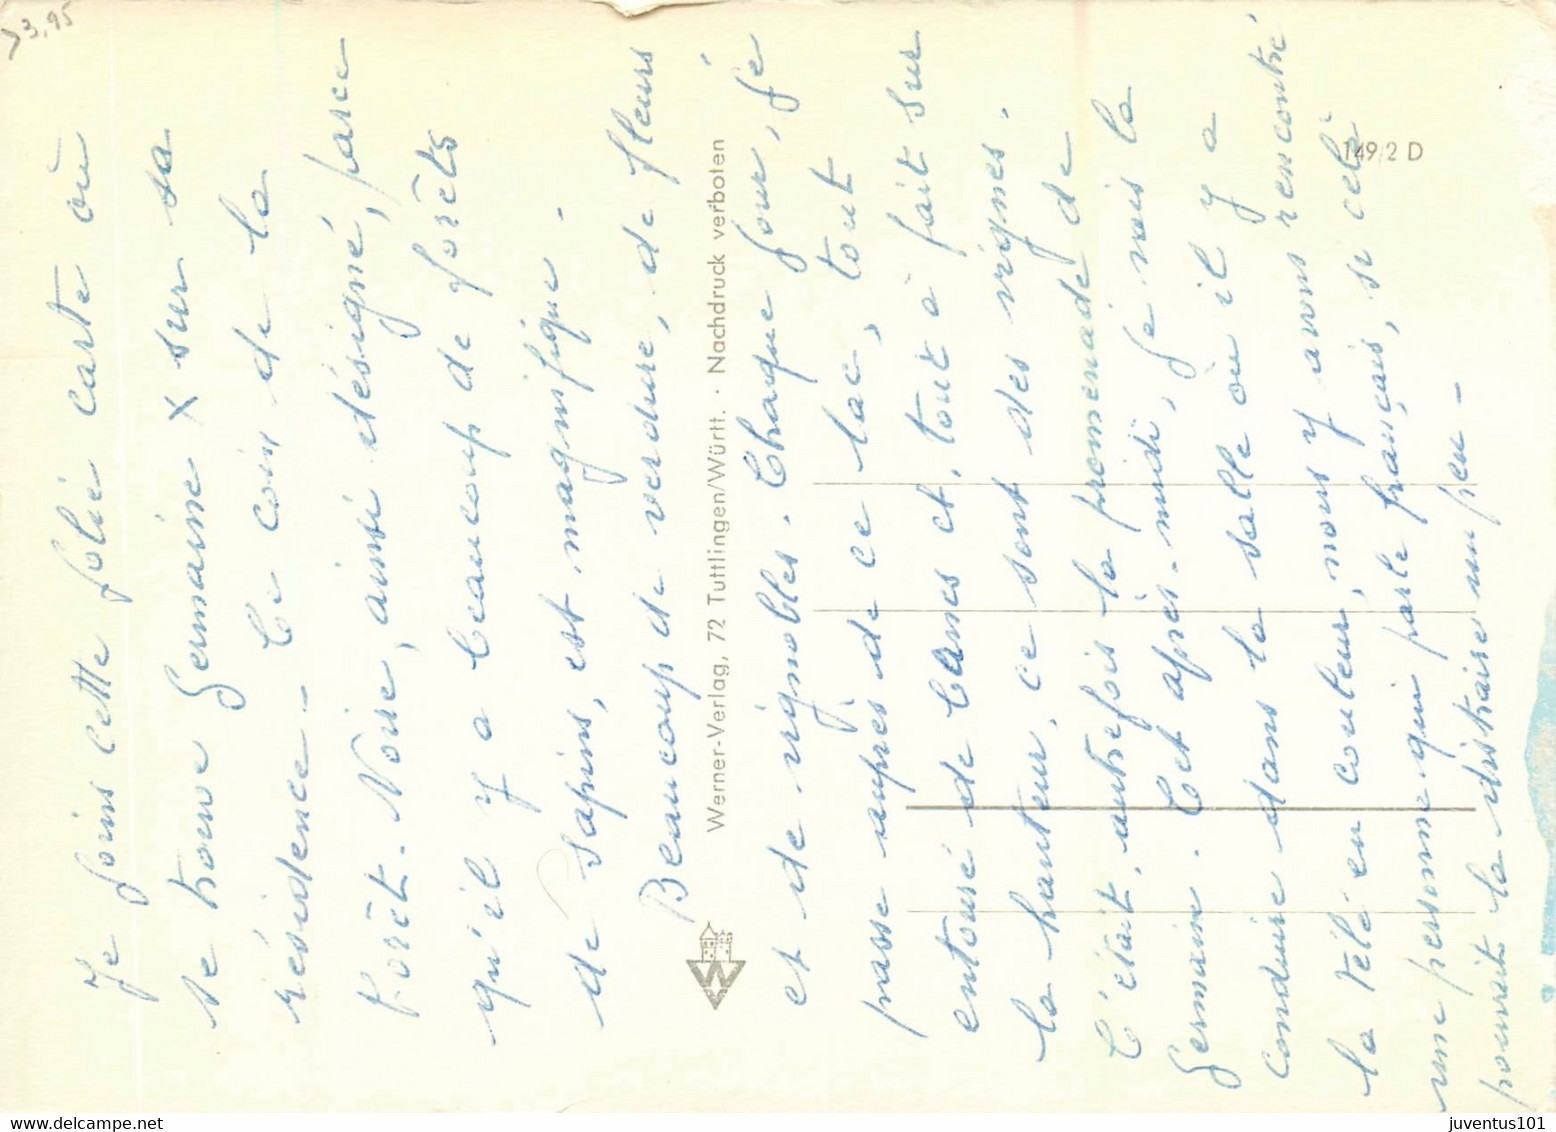 Je joins cette jolie carte où
se trouve Germaine X sur sa
résidence - Ce coin de la
Forêt-Noire, ainsi désigné, parce
qu'il y a beaucoup de forêts
de sapins, est magnifique -
Beaucoup de verdure, de fleurs
et de vignobles. Chaque jour, je
passe auprès de ce lac, tout
entouré de Canes et, tout à fait sur
la hauteur, ce sont des vignes.
C'était, autrefois la promenade de
Germaine. Cet après-midi, je vais la
conduire dans la salle où il y a
la Télé en couleur, nous y avons rencontré
une personne qui parle français, si celà
pouvait la distraire un peu -
Werner-Verlag, 72 Tuttlingen/Württ. · Nachdruck verboten
149/2 D
3,95
juventus101